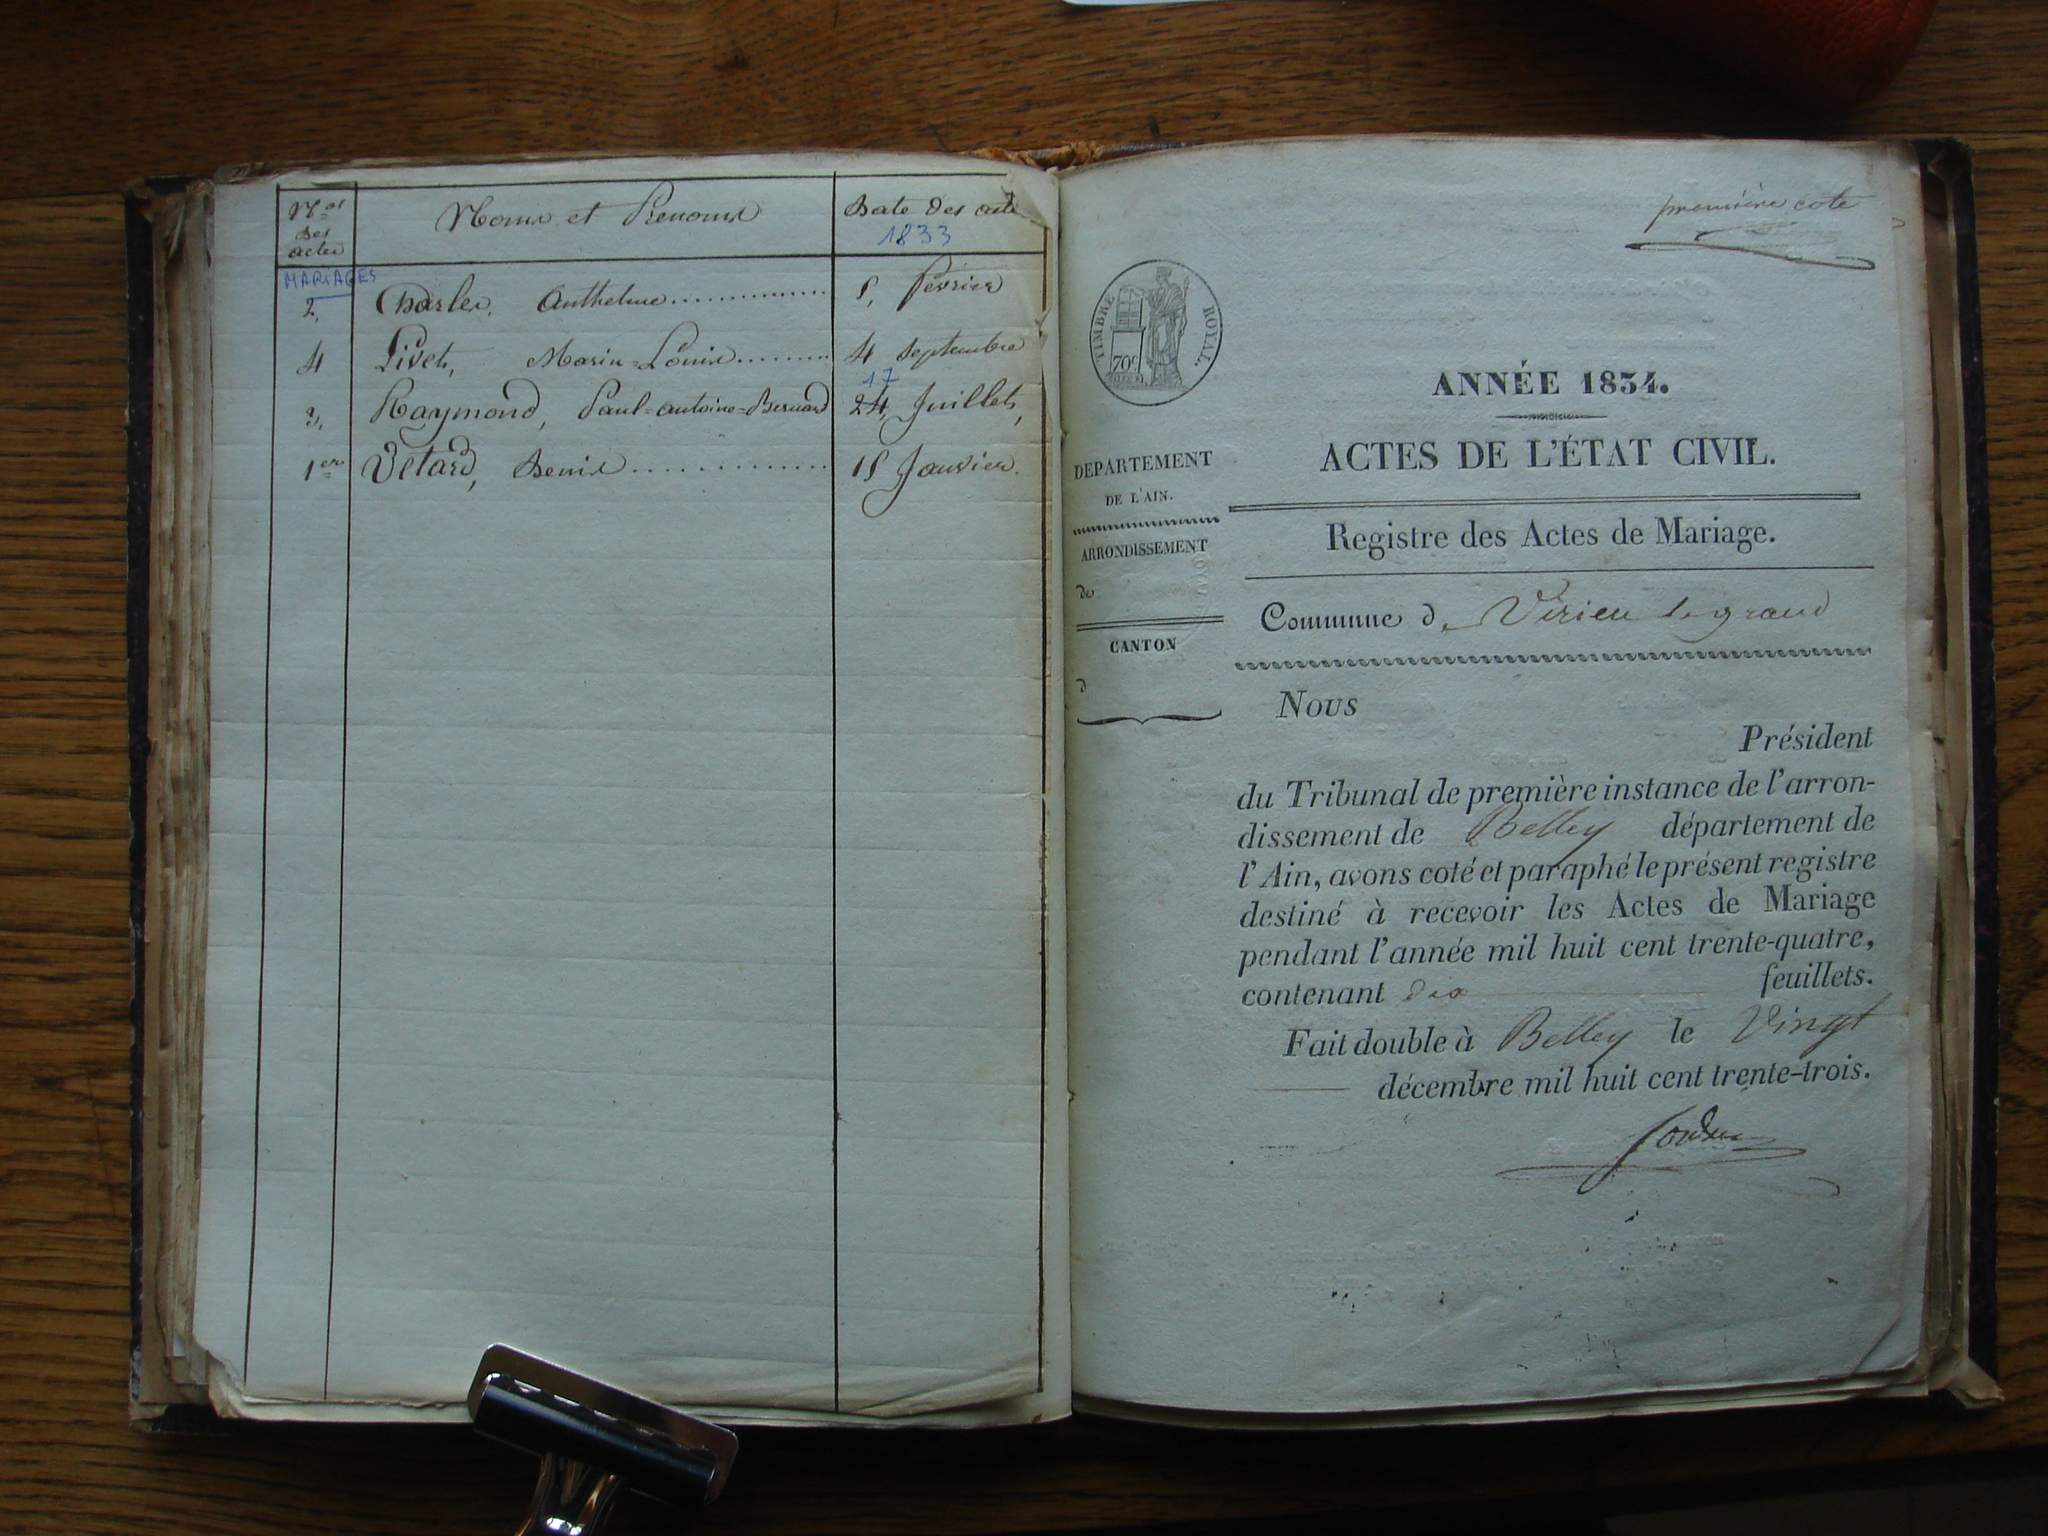 Nos des actes
Noms et Prénoms
Date des acte
1833
MARIAGES
2, Charles, Anthelme 5, février
4 Livet, Marin=Louis 4 Septembre
17
3, Raymond, Paul=antoine=Bernard 24, Juillet,
1er Vetard, Denis 15 Janvier.
première cote
TIMBRE ROYAL.
70c
ANNÉE 1834.
ACTES DE L'ÉTAT CIVIL.
DEPARTEMENT
DE L'AIN.
Registre des Actes de Mariage.
ARRONDISSEMENT
de
Commune d, Virieu le grand
CANTON
d
Nous
Président
du Tribunal de première instance de l'arron-
dissement de Belley département de
l'Ain, avons coté et paraphé le présent registre
destiné à recevoir les Actes de Mariage
pendant l'année mil huit cent trente-quatre,
contenant dix feuillets.
Fait double à Belley le Vingt
décembre mil huit cent trente-trois.